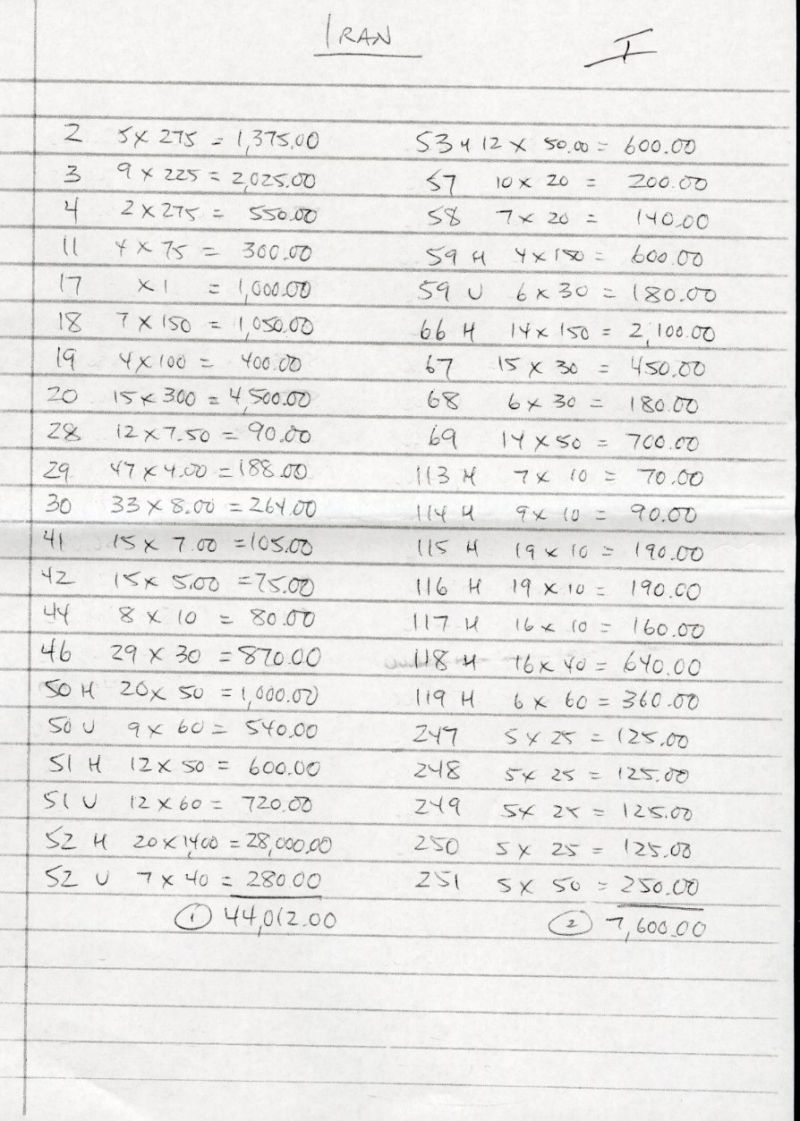 IRAN
I
2 5 x 275 = 1,375.00
3 9 x 225 = 2,025.00
4 2 x 275 = 550.00
11 4 x 75 = 300.00
17 x 1 = 1,000.00
18 7 x 150 = 1,050.00
19 4 x 100 = 400.00
20 15 x 300 = 4,500.00
28 12 x 7.50 = 90.00
29 47 x 4.00 = 188.00
30 33 x 8.00 = 264.00
41 15 x 7.00 = 105.00
42 15 x 5.00 = 75.00
44 8 x 10 = 80.00
46 29 x 30 = 870.00
50 H 20 x 50 = 1,000.00
50 U 9 x 60 = 540.00
51 H 12 x 50 = 600.00
51 U 12 x 60 = 720.00
52 H 20 x 1400 = 28,000.00
52 U 7 x 40 = 280.00
① 44,012.00
53 H 12 x 50.00 = 600.00
57 10 x 20 = 200.00
58 7 x 20 = 140.00
59 H 4 x 150 = 600.00
59 U 6 x 30 = 180.00
66 H 14 x 150 = 2,100.00
67 15 x 30 = 450.00
68 6 x 30 = 180.00
69 14 x 50 = 700.00
113 H 7 x 10 = 70.00
114 H 9 x 10 = 90.00
115 H 19 x 10 = 190.00
116 H 19 x 10 = 190.00
117 H 16 x 10 = 160.00
118 H 16 x 40 = 640.00
119 H 6 x 60 = 360.00
247 5 x 25 = 125.00
248 5 x 25 = 125.00
249 5 x 25 = 125.00
250 5 x 25 = 125.00
251 5 x 50 = 250.00
② 7,600.00